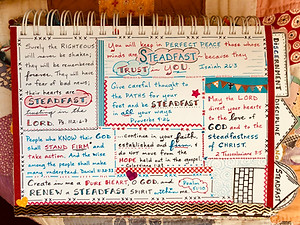 Surely the RIGHTEOUS
will never be shaken;
they will be remembered
forever. They will have
no fear of bad news;
their hearts are
STEADFAST,
trusting in the
LORD. Ps. 112:6-7
You will keep in PERFECT PEACE those whose
minds are STEADFAST because they
TRUST in YOU. Isaiah 26:3
Give careful thought to
the PATHS for your
feet and be STEADFAST
in all your ways.
Proverbs 4:26
May the LORD
direct your hearts
to the love of
GOD and to the
STEADFASTNESS
of CHRIST.
2 Thessalonians 3:5
People who KNOW their GOD
will STAND FIRM and
TAKE ACTION. And the wise
among the people shall make
many understand. Daniel 11:32-33
continue in your faith,
established and firm,
do not move from the
HOPE held out in the gospel
Colossians
Create in me a PURE HEART, O GOD and
RENEW a STEADFAST SPIRIT within me.
Psalm
51:10
DISCERNMENT
DISCIPLINE
STEADFAST